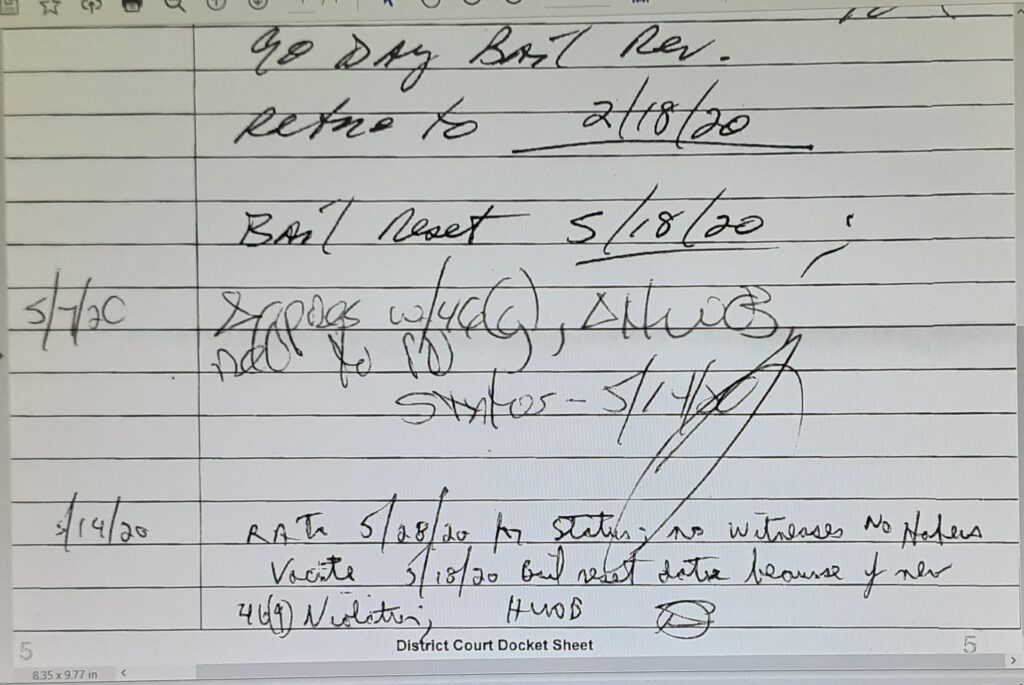 90 DAY BAIL Rev.
Retne to 2/18/20
BAIL Reset 5/18/20 ;
5/7/20 w/46(g), ΔHWOB,
to
Status - 5/14/20
5/14/20 RATn 5/28/20 for Status; no witnesses No
Vacate 5/18/20 bail reset date because of new
46(g) Violation; HWOB
District Court Docket Sheet
5 5
8.35 x 9.77 in